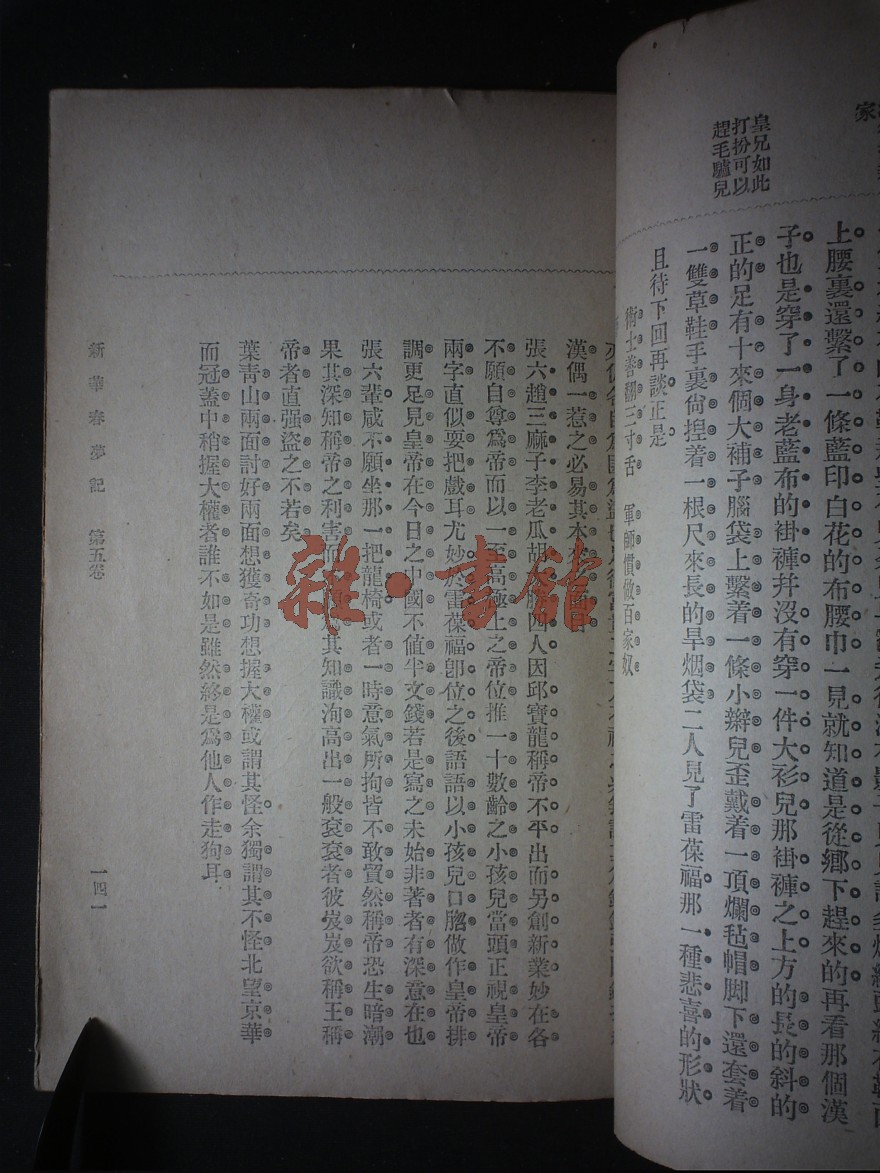 家
皇兄如此
打扮可以
趕毛驢兒
上腰裏還繫了一條藍印白花的布腰巾一見就知道是從鄉下趕來的再看那個漢
子也是穿了一身老藍布的褂褲幷沒有穿一件大衫兒那褂褲之上方的長的斜的
正的足有十來個大補子腦袋上繫着一條小辮兒歪戴着一頂爛毡帽脚下還套着
一雙草鞋手裏尙揑着一根尺來長的旱烟袋二人見了雷葆福那一種悲喜的形狀
且待下回再談正是
術士善翻三寸舌 軍師慣做百家奴
漢偶一惹之必易其本
張六趙三麻子李老瓜胡四人因邱寶龍稱帝不平出而另創新業妙在各
不願自尊爲帝而以一至高極上之帝位推一十數齡之小孩兒當頭正視皇帝
兩字直似耍把戲耳尤妙於雷葆福卽位之後語語以小孩兒口脗做作皇帝排
調更足見皇帝在今日之中國不值半文錢若是寫之未始非著者有深意在也
張六輩咸不願坐那一把龍椅或者一時意氣所拘皆不敢貿然稱帝恐生暗潮
果其深知稱帝之利害而其知識洵高出一般袞袞者彼岌岌欲稱王稱
帝者直强盜之不若矣
葉靑山兩面討好兩面想獲奇功想握大權或謂其怪余獨謂其不怪北望京華
而冠蓋中稍握大權者誰不如是雖然終是爲他人作走狗耳
新華春夢記 第五卷
一四一
雜·書館